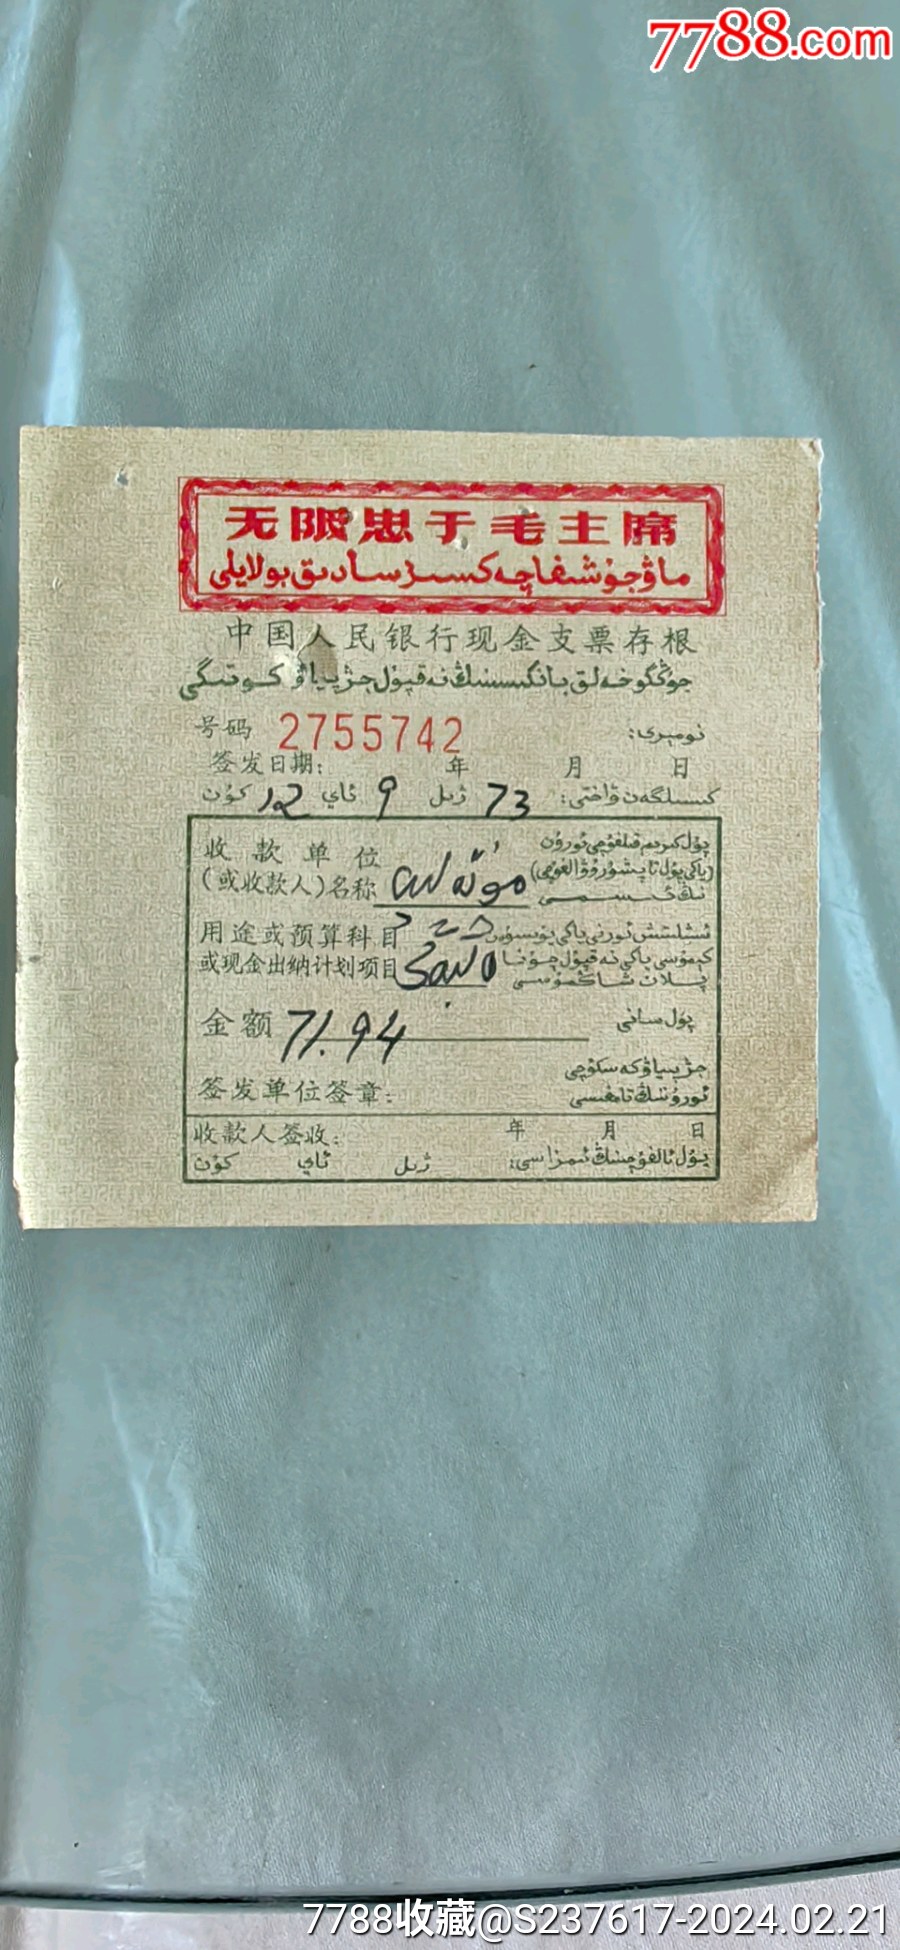 7788.com
无限忠于毛主席
ماۋجۇشىغا چەكسىز سادىق بولايلى
中国人民银行现金支票存根
جۇڭگو خەلق بانكىسىنىڭ نەقپۇل جژپياۋ كوتىگى
号码 2755742 نومېرى:
签发日期: 年 月 日
كىسىلگەن ۋاختى: 73 ژىل 9 ئاي 12 كۈن
收款单位 پۇل كىرىم قىلغۇچى ئورۇن
(或收款人)名称
نىڭ ئىسمى
用途或预算科目
或现金出纳计划项目
金额 71.94 پۇل سانى
جژپياۋ كەسكۈچى
签发单位签章: ئورۇننىڭ تامغىسى
收款人签收: 年 月 日
پۇل ئالغۇچىنىڭ ئىمزاسى: ژىل ئاي كۈن
7788收藏@S237617-2024.02.21